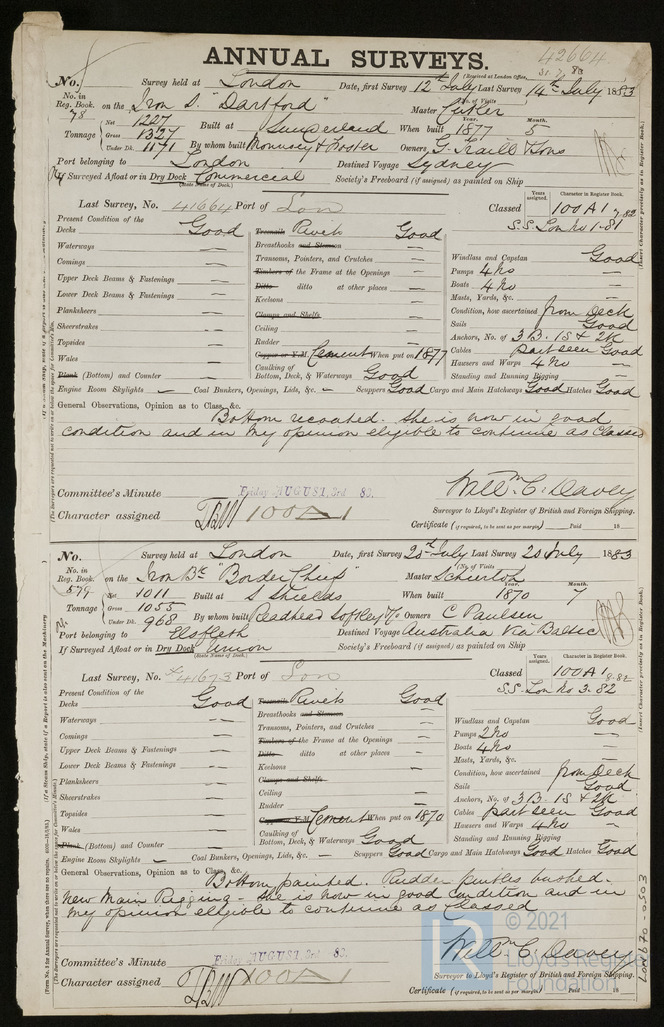 42664
ANNUAL SURVEYS.
(Received at London Office, 31.7.83
No. Survey held at London Date, first Survey 12th July Last Survey 14th July 1883
No. in Reg. Book. on the Iron S. "Dartford" Master Cutler (No. of Visits
78
Tonnage Net 1207 Gross 1327 Under Dk. 1171 Built at Sunderland When built Year. 1877 Month. 5
By whom built Mounsey & Foster Owners G. Traill & Sons
Port belonging to London Destined Voyage Sydney
If Surveyed Afloat or in Dry Dock Commercial Society's Freeboard (if assigned) as painted on Ship
(State Name of Dock.)
Last Survey, No. 41664 Port of Lon Classed Years assigned. Character in Register Book. 100A1 7,82
S.S. Lon No 1-81
Present Condition of the
Decks Good Treenails Rivets Good
Waterways — Breasthooks and Stemson — Windlass and Capstan Good
Comings — Transoms, Pointers, and Crutches — Pumps 4 No —
Upper Deck Beams & Fastenings — Timbers of the Frame at the Openings — Boats 4 No —
Lower Deck Beams & Fastenings — Ditto ditto at other places — Masts, Yards, &c. —
Planksheers — Keelsons — Condition, how ascertained from Deck
Sheerstrakes — Clamps and Shelfs — Sails Good
Topsides — Ceiling — Anchors, No. of 3 B. 1S & 2K
Wales — Rudder — Cables part seen Good
Plank (Bottom) and Counter — Copper or Y.M. Cement When put on 1877 Hawsers and Warps 4 No —
Caulking of Bottom, Deck, & Waterways Good Standing and Running Rigging —
Engine Room Skylights — Coal Bunkers, Openings, Lids, &c. — Scuppers Good Cargo and Main Hatchways Good Hatches Good
General Observations, Opinion as to Class, &c.
Bottom recoated. She is now in good
condition and in my opinion eligible to continue as Classed
Committee's Minute Friday AUGUST 3rd 83. Willm C. Davey
Character assigned 100A1 Surveyor to Lloyd's Register of British and Foreign Shipping.
Certificate (if required, to be sent as per margin) Paid 18
No. Survey held at London Date, first Survey 20th July Last Survey 20 July 1883
No. in Reg. Book. on the Iron Bk "Border Chief" Master Schierloh (No. of Visits
579
Tonnage Net 1011 Gross 1055 Under Dk. 968 Built at S Shields When built Year. 1870 Month. 7
By whom built Readhead Softley & Co Owners C Paulsen
Port belonging to Elsfleth Destined Voyage Australia via Baltic
If Surveyed Afloat or in Dry Dock Union Society's Freeboard (if assigned) as painted on Ship
(State Name of Dock.)
Last Survey, No. 41673 Port of Lon Classed Years assigned. Character in Register Book. 100A1 8.82
S.S. Lon No 3-82
Present Condition of the
Decks Good Treenails Rivets Good
Waterways — Breasthooks and Stemson — Windlass and Capstan Good
Comings — Transoms, Pointers, and Crutches — Pumps 2 No —
Upper Deck Beams & Fastenings — Timbers of the Frame at the Openings — Boats 4 No —
Lower Deck Beams & Fastenings — Ditto ditto at other places — Masts, Yards, &c. —
Planksheers — Keelsons — Condition, how ascertained from Deck
Sheerstrakes — Clamps and Shelfs — Sails Good
Topsides — Ceiling — Anchors, No. of 3 B. 1S & 2K
Wales — Rudder — Cables part seen Good
Plank (Bottom) and Counter — Copper or Y.M. Cement When put on 1870 Hawsers and Warps 4 No —
Caulking of Bottom, Deck, & Waterways Good Standing and Running Rigging —
Engine Room Skylights — Coal Bunkers, Openings, Lids, &c. — Scuppers Good Cargo and Main Hatchways Good Hatches Good
General Observations, Opinion as to Class, &c.
Bottom painted. Rudder pintles bushed.
New Main Rigging - She is now in good condition and in
my opinion eligible to continue as Classed
Committee's Minute Friday AUGUST 3rd 83. Willm C. Davey
Character assigned 100A1 Surveyor to Lloyd's Register of British and Foreign Shipping.
Certificate (if required, to be sent as per margin) Paid 18
LON670-0503
© 2021
Lloyd's Register
Foundation